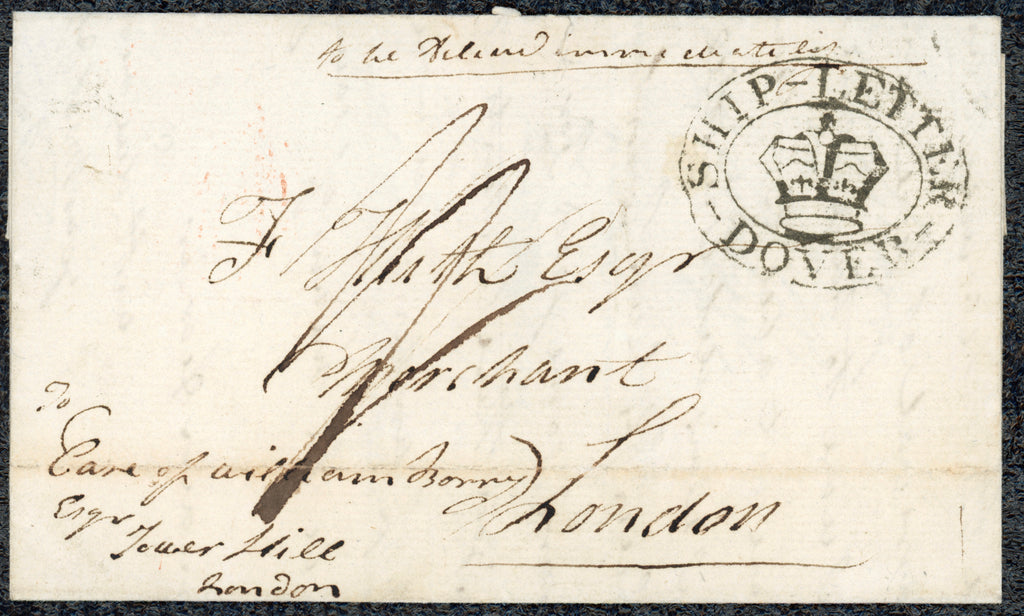 to be Deliverd immediately
SHIP-LETTER
DOVER
F Huth Esqr
Merchant
London
To
Care of William Borry
Esqr
Tower Hill
London